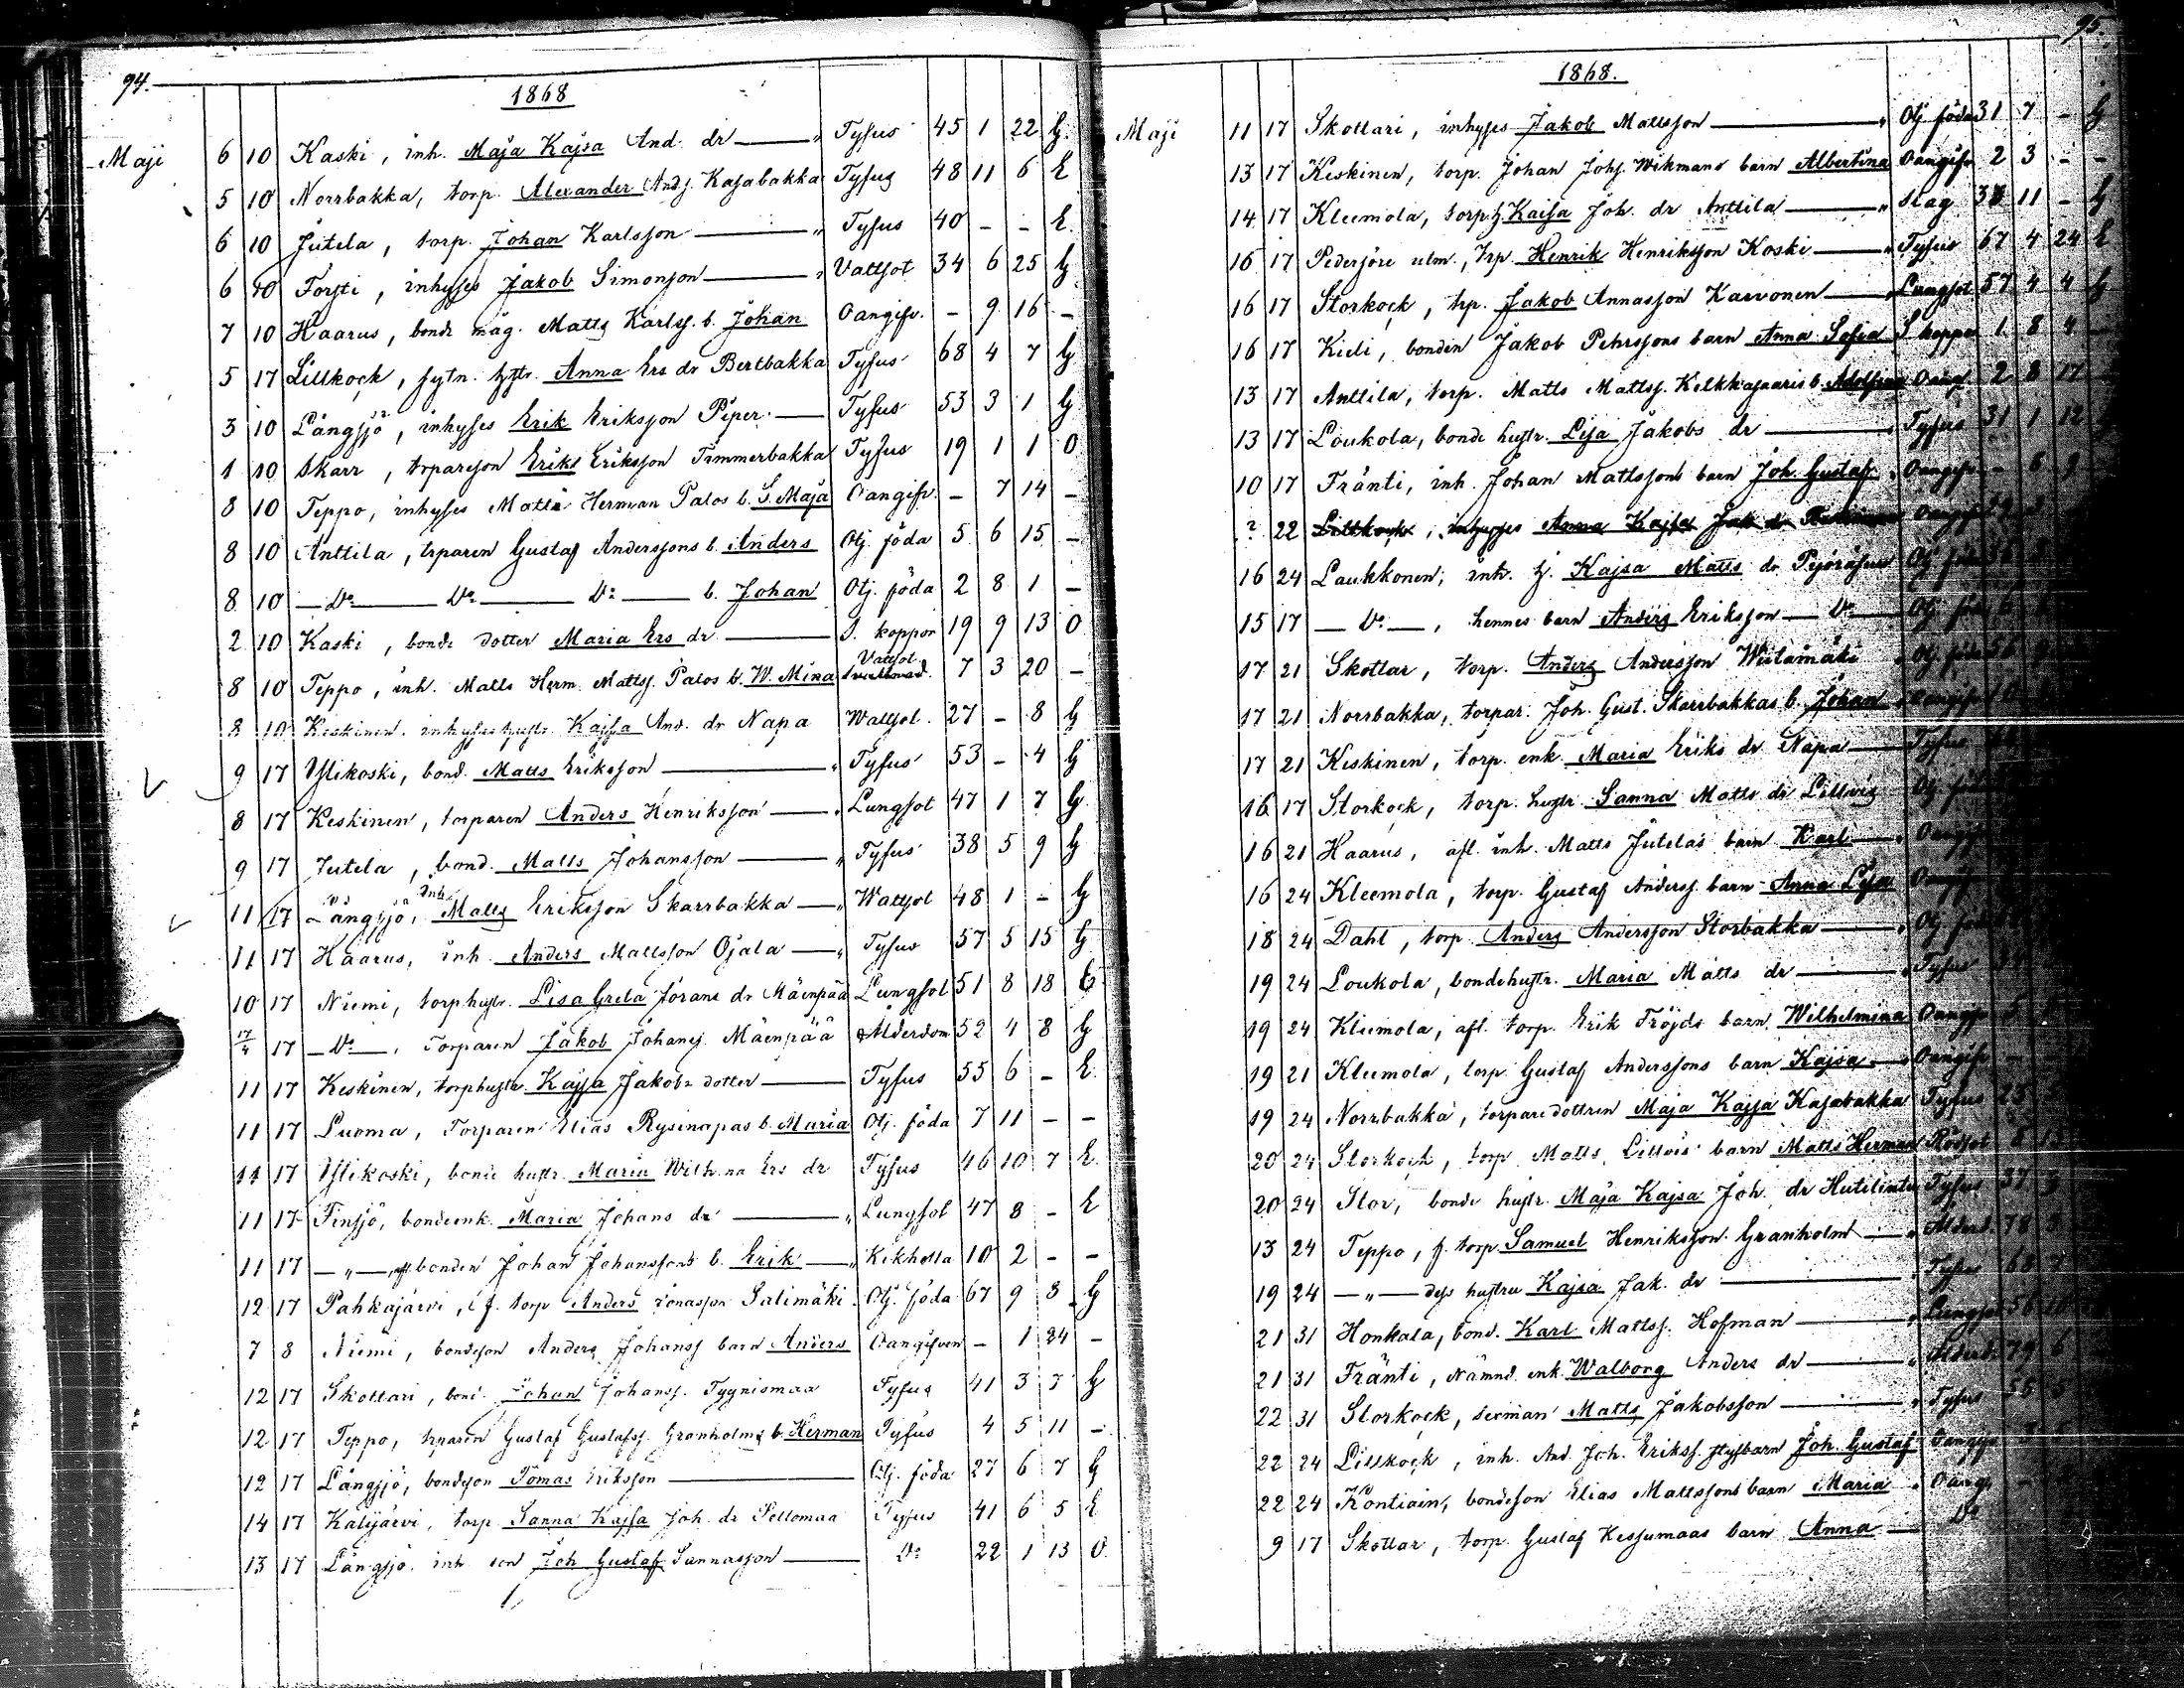 94.
1868
Maji 6 10 Kaski, inh. Maja Kajsa And. dr — " Tyfus 45 1 22 G.
5 10 Norrbakka, torp. Alexander Andj. Kajabakka Tyfus 48 11 6 E
6 10 Jutela, torp. Johan Karlsson — " Tyfus 40 - - E.
6 10 Torsti, inhyses Jakob Simonson — " Vattsot 34 6 25 G
7 10 Haarus, bonde måg. Matts Karlss. b. Johan Oangifv. - 9 16 -
5 17 Lillkock, sytn. hstr. Anna Ers dr Bertbakka Tyfus 68 4 7 G
3 10 Långsjö, inhyses Erik Eriksson Piper — Tyfus 53 3 1 G
1 10 Skarr, torpareson Eriks Eriksson Timmerbakka Tyfus 19 1 1 O
8 10 Teppo, inhyses Matts Herman Palos b. S. Maja Oangifv. - 7 14 -
8 10 Anttila, trparen Gustaf Anderssons b. Anders Otj. föda 5 6 15 -
8 10 — Do — Do — Do — b. Johan Otj. föda 2 8 1 -
2 10 Kaski, bonde dotter Maria Ers dr — S. koppor 19 9 13 O
8 10 Teppo, inh. Matts Herm. Mattss. Palos b. W. Mina Vattsot 7 3 20 -
8 10 Keskinen. inhyses hustr. Kajsa And. dr Napa Wattsot. 27 - 8 G
9 17 Yslikoski, bond. Matts Eriksson — " Tyfus 53 - 4 G
8 17 Keskinen, torparen Anders Henriksson — " Lungsot 47 1 7 G.
9 17 Jutela, bond. Matts Johansson — " Tyfus 38 5 9 G
11 17 Långsjö, Inh. Matts Eriksson Skarrbakka — " Wattsot 48 1 - G
11 17 Haarus, inh. Anders Mattsson Ojala — " Tyfus 57 5 15 G
10 17 Niemi, torphustr. Lisa Greta Jörans dr Mäenpää Lungsot 51 8 18 G
17/4 17 — Do —, Torparen Jakob Johanss. Mäenpää Ålderdom 52 4 8 G
11 17 Keskinen, torphustr. Kajsa Jakobs dotter — Tyfus 55 6 - E.
11 17 Luoma, Torparen Elias Rysinapas b. Maria Otj. föda 7 11 - -
11 17 Yslikoski, bonde hustr. Maria Wilh.na Ers dr Tyfus 46 10 7 E.
11 17 Finsjö, bondeenk. Maria Johans dr — " Lungsot 47 8 - E
11 17 — " — bonden Johan Johanssons b. Erik — " Kikhosta 10 2 - -
12 17 Pahkajärvi, f. torp Anders Jonasson Salimäki. Otj. föda 67 9 8 G
7 8 Niemi, bondeson Anders Johanss barn Anders Oangifven - 1 24 -
12 17 Skottari, bond. Johan Johanss. Tyynismaa Tyfus 41 3 7 G
12 17 Teppo, trparen Gustaf Gustafss. Granholms b. Herman Tyfus 4 5 11 -
12 17 Långsjö, bondeson Tomas Eriksson — Otj. föda 27 6 7 G
14 17 Kalijärvi, torp. Sanna Kajsa Joh. dr Peltomaa Tyfus 41 6 5 E
13 17 Långsjö. inh. son Joh Gustaf Sannasson — Do 22 1 13 O.
95.
1868.
Maji 11 17 Skottari, inhyses Jakob Mattsson — " Otj föda 31 7 - G
13 17 Keskinen, torp. Johan Johs. Wikmans barn Albertina Oangifv 2 3 - -
14 17 Kleemola, torp. h. Kaisa Joh. dr Anttila — " Slag 11 - G
16 17 Pedersöre utm., trp. Henrik Henriksson Koski — " Tyfus 67 4 24 E
16 17 Storkock, trp. Jakob Annasson Karvonen — " Lungsot 57 4 4 G
16 17 Kieli, bonden Jakob Pehrssons barn Anna Sofia S. koppor 1. 8 4 -
13 17 Anttila, torp. Matts Mattss. Kelkkajaaris b. Oang 2 8 17
13 17 Loukola, bonde hustr. Lisa Jakobs dr — " Tyfus 31 1 12
10 17 Fränti, inh. Johan Mattssons barn Joh. Gustaf " Oangifv - 6
? 22 Lillkock, inhyses Anna Kajsa Jak dr
16 24 Laukkonen, inh. h. Kajsa Matts dr Otj. föda
15 17 — Do —, hennes barn Anders Eriksson — Do Otj. föda
17 21 Skottar, torp. Anders Andersson Wiitamäki " Otj. föda 56
17 21 Norrbakka, torpar. Joh. Gust. Skarrbakkas b. Johan Oangifv
17 21 Keskinen, torp. enk. Maria Eriks dr Napa — Tyfus
16 17 Storkock, torp. hustr. Sanna Matts dr Lillvis Otj. föda
16 21 Haarus, afl. inh. Matts Jutelas barn Karl — " Oangifv
16 24 Kleemola, torp. Gustaf Anderss. barn Anna Lisa Oangifv
18 24 Dahl, torp. Anders Andersson Storbakka — " Otj. föda
19 24 Loukola, bondehustr. Maria Matts dr — " Tyfus
19 24 Kleemola, afl. torp. Erik Tröjds barn Wilhelmina Oangifv 5
19 21 Kleemola, torp. Gustaf Anderssons barn Kajsa — " Oangifv
19 24 Norrbakka, torparedottren Maja Kajsa Kajabakka Tyfus 23
20 24 Storkock, torp. Matts Lillvis barn Matts Herman Rödsot 8
20 24 Stor, bonde hustr. Maja Kajsa Joh. dr Tyfus 37
13 24 Teppo, f. torp. Samuel Henriksson Granholm — " Ålderd. 78 8
19 24 — " — dess hustru Kajsa Jak. dr — " Tyfus 68 7
21 31 Honkala, bond. Karl Mattss. Hofman — " Lungsot 56 10
21 31 Fränti, Nämnd. enk. Walborg Anders dr — " Ålderd. 79 6
22 31 Storkock, sexman Matts Jakobsson — " Tyfus 55
22 24 Lillkock, inh. And. Joh. Erikss. styfbarn Joh. Gustaf Oangifv
22 24 Kontiain, bondeson Elias Mattssons barn Maria " Oangifv
9 17 Skottar, torp. Gustaf Kessumaas barn Anna — Do